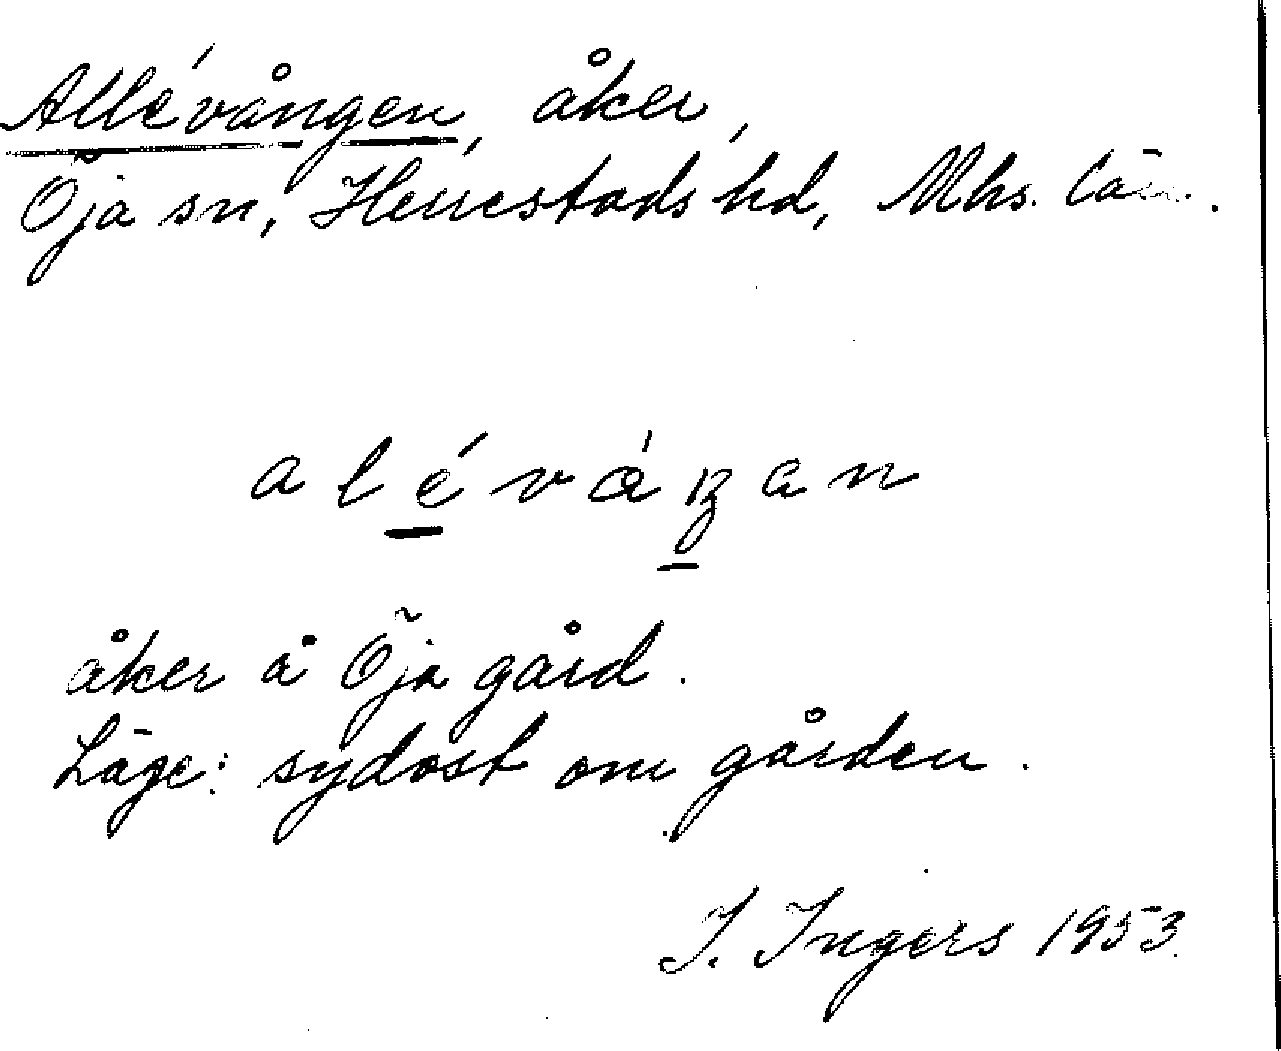 Allévången, åker,
Öja sn, Herrestads hd, Mhs. län.
aléváŋan
åker å Öja gård.
Läge: sydost om gården.
I. Ingers 1953.